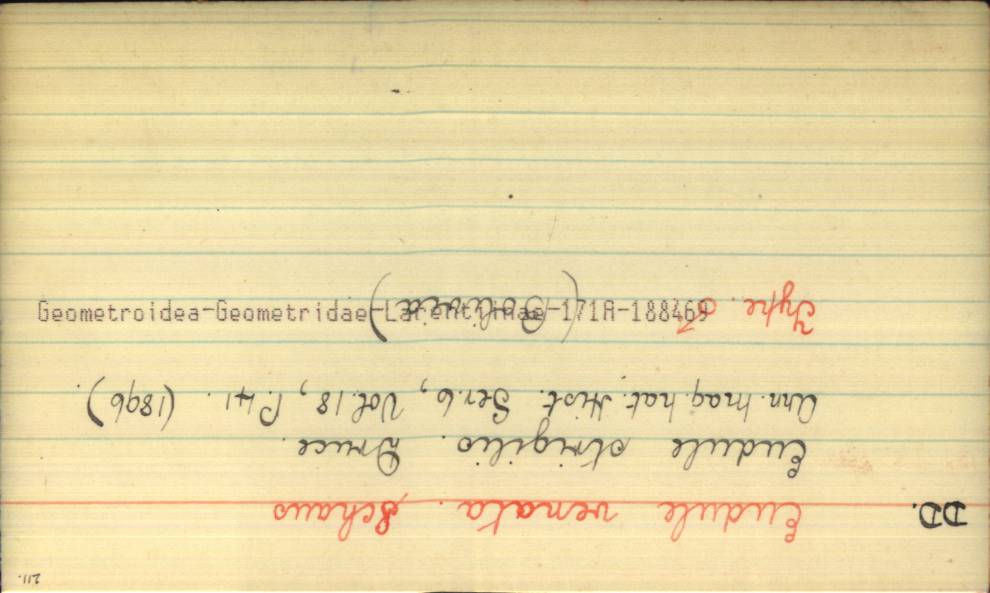 211.
DD. Eudule venata. Schaus
Eudule strigilis. Druce.
Ann. Mag. Nat. Hist. Ser. 6, Vol. 18, P. 41. (1896).
Type. ♂ (Bolivia)
Geometroidea-Geometridae-Larentiinae-171A-188469